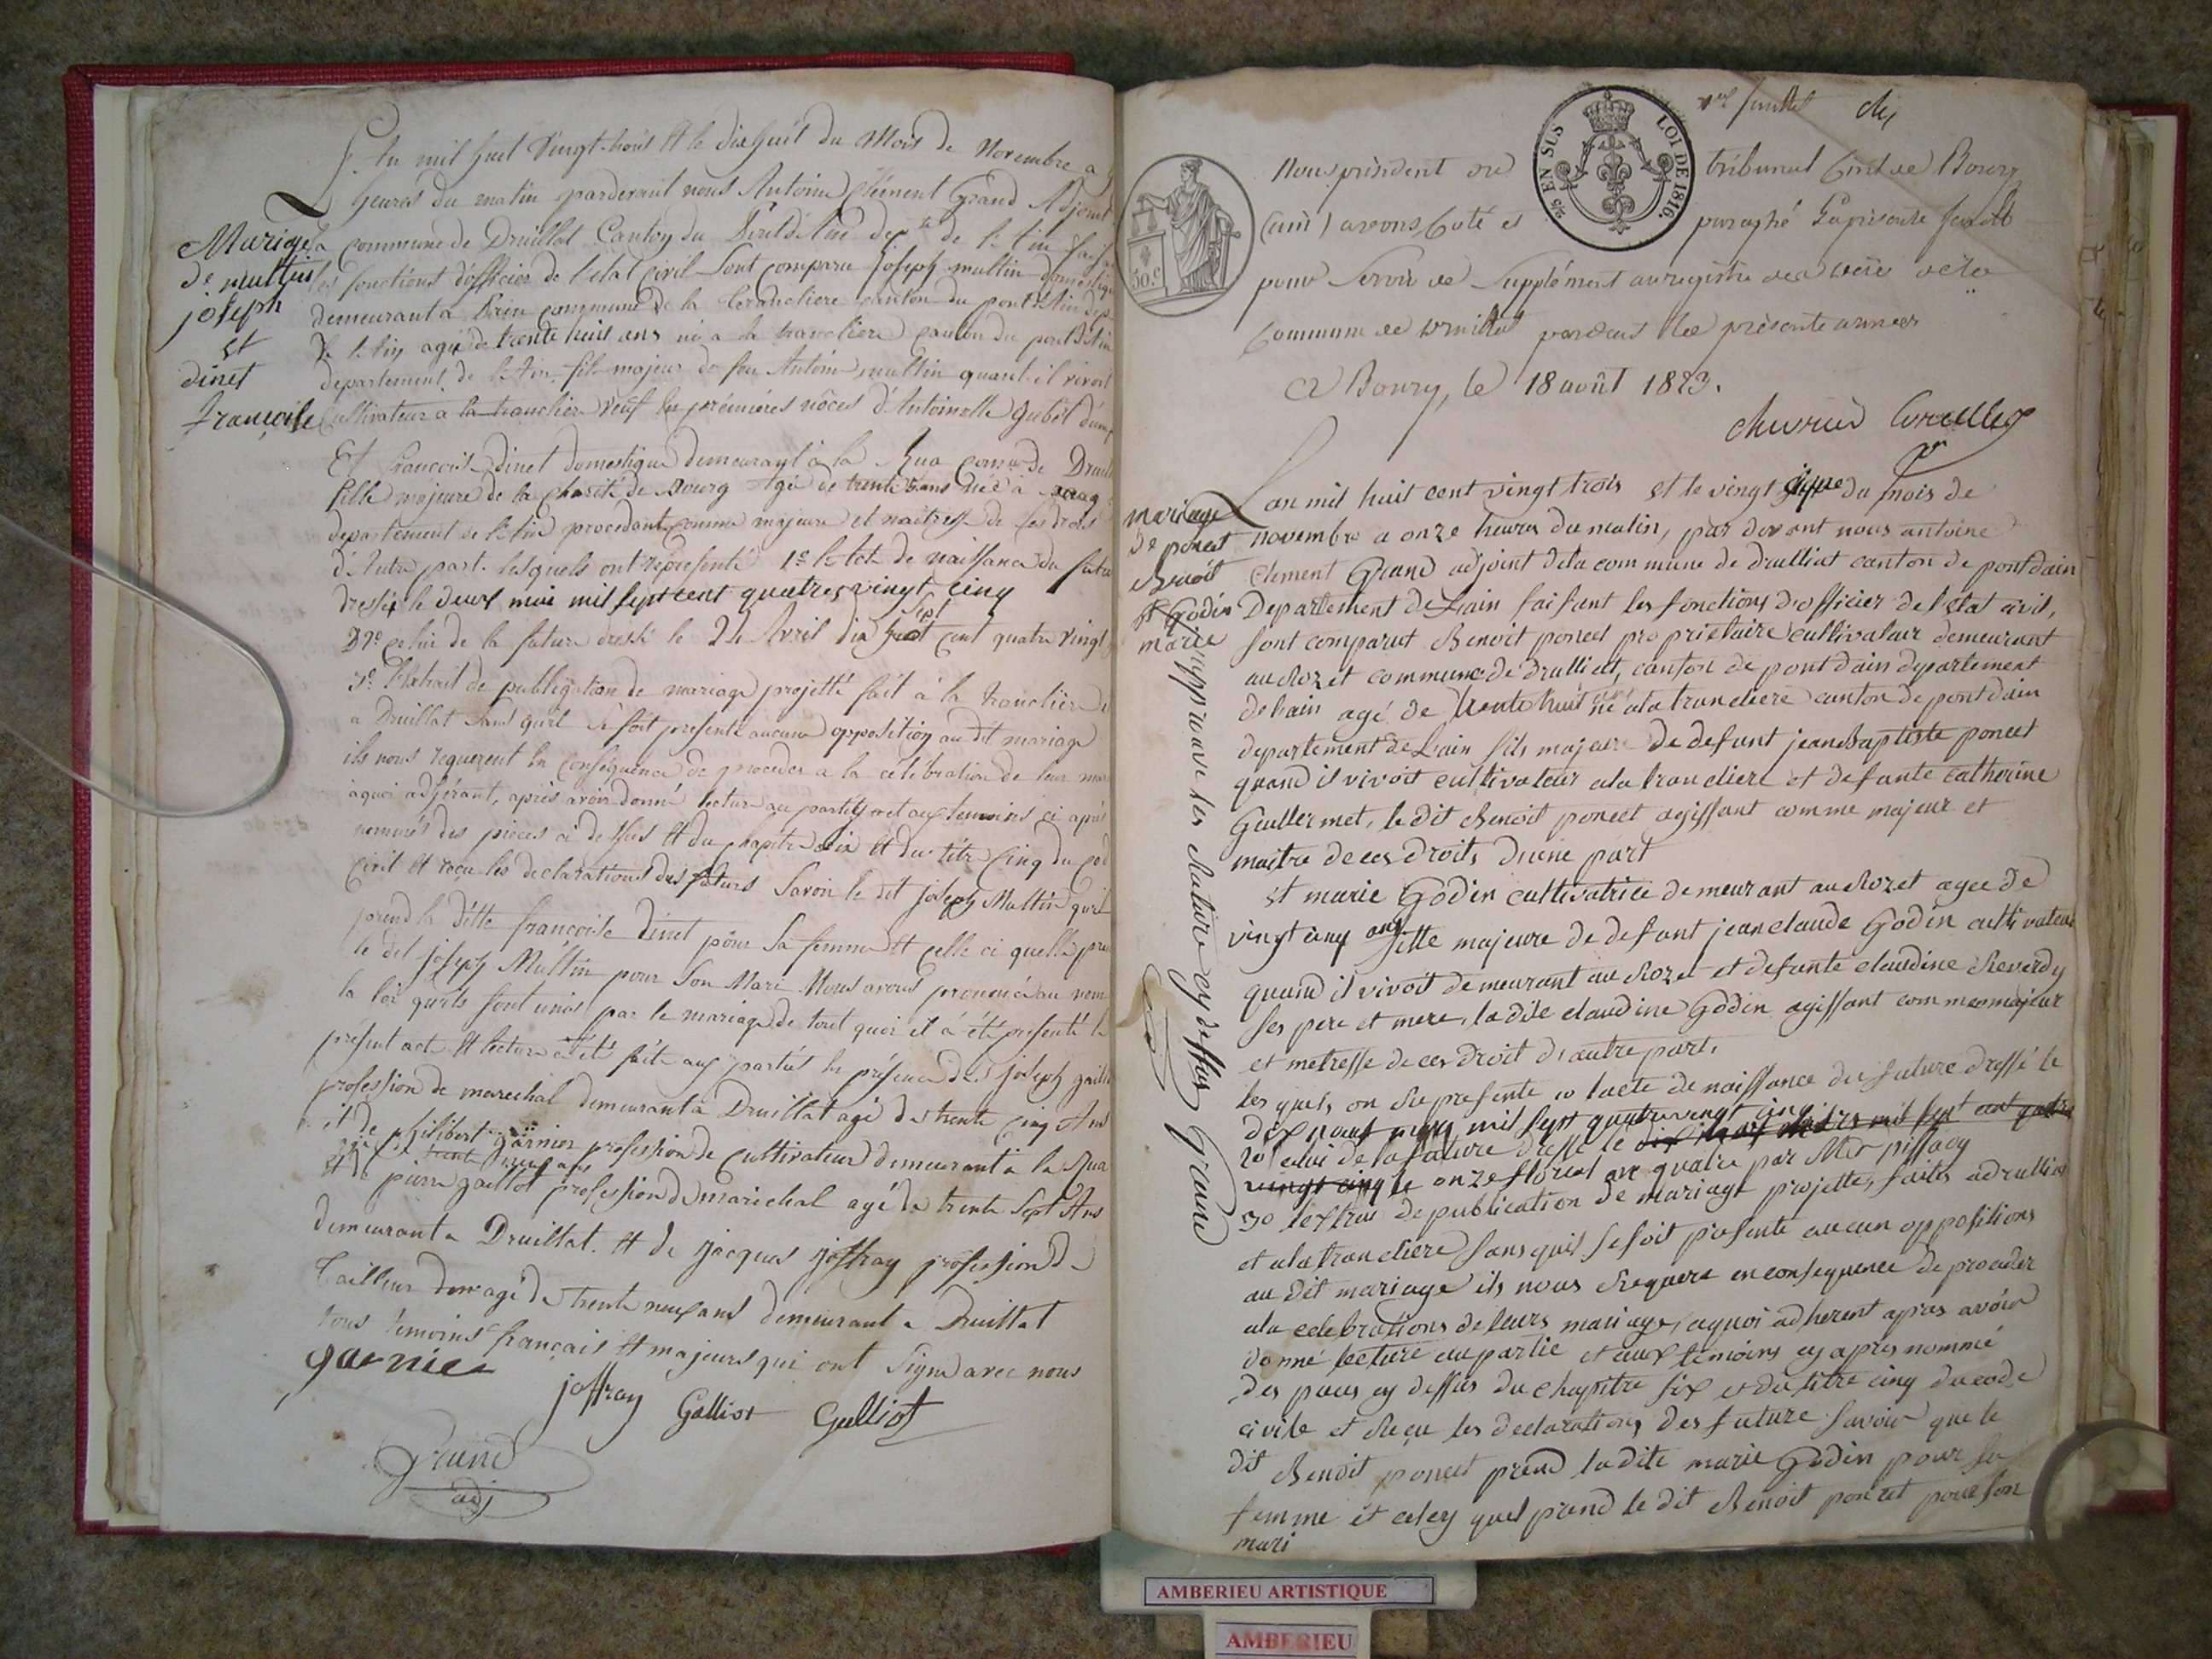 L'an mil huit vingt-trois et le dix huit du Mois de Novembre a
heures du matin pardevant nous Antoine Clément Grand Adjoint
la commune de Druillat Canton du Pont d'Ain dep.te de l'Ain fais
les fonctions d'officier de l'etat civil sont comparu joseph multin domestique
demeurant a commune de la tranclière canton du pont d'Ain dep
de l'Ain agé de trente huit ans né a la tranclière canton du pont d'Ain
departement de l'Ain fils majeur de feu Antoine multin quant il vivoit
Cultivateur a la tranclière veuf les premières nôces d'Antoinette
Mariage
de multin
joseph
et
dinet
françoise
Et françoise dinet domestique demeurant à la Rua comne de Druil
fille majeure de la charité de Bourg agé de trente ans née à
departement de l'Ain procedant comme majeure et maitresse de ses droits
d'Autre part. lesquels ont représenté 1º l'acte de naissance du futur
dressée le deux mai mil sept cent quatres vingt cinq
2º celui de la future dressé le 24 Avril dix sept cent quatre vingt
3º l'Extrait de publication de mariage projetté fait à la tranclière
a Druillat sans qu'il se soit presenté aucune opposition au dit mariage
ils nous requerent en conséquence de proceder a la célébration de leur mar
aquoi adhérant, après avoir donné lecture au parties et aux temoins ci après
nommés des pièces ci dessus et du chapitre six et du titre Cinq du cod
Civil et reçu les declarations des futurs Savoir le dit joseph Multin qu'il
prend la ditte françoise dinet pour sa femme et celle ci quelle pren
le dit joseph Multin pour Son Mari Nous avons prononcé au nom
la loi qu'ils sont unis par le mariage de tout quoi il a été presenté le
présent acte et lecture a été faite aux parties en présence de joseph gaill
profession de marechal demeurant à Druillat agé de trente cinq Ans
et de philibert garnier profession de cultivateur demeurant a la Rua
agé de trente neuf ans
et de pierre gaillot profession de marichal agé de trente Sept Ans
demeurant a Druillat. et de jacques joffray profession de
tailleur agé de trente neuf ans demeurant a Druillat
tous temoins français et majeurs qui ont Signé avec nous
garnier
joffray Galliot Galliot
Grand
adj
1er feuillet
Nous président du tribunal Civil de Bourg
(ain) avons coté et paraphé la présente feuille
pour servir de Supplément au registre de
Commune de druillat pendant la présente année
A Bourg, le 18 août 1823.
50.c
25 EN SUS
LOI DE 1816.
Lan mil huit cent vingt trois et le vingt du mois de
novembre a onze heures du matin, par devant nous antoine
clement Grand adjoint dela commune de drulliat canton de pontdain
Departement de Lain faisant les fonctions d'officier de l'état civil,
sont comparut Benoit poncet proprietaire cultivateur demeurant
au Rozet commune de drulliat, canton de pont dain departement
de lain agé de trente huit ans né ala trancliere canton de pont dain
departement de Lain fils majeure de defunt jean Baptiste poncet
quand il vivoit cultivateur ala trancliere et defunte catherine
Guillermet, le dit Benoit poncet agissant comme majeur et
maitre de ces droits Dune part
mariage
de poncet
Benoit
et Godin
marie
Et marie Godin cultivatrice demeurant au Rozet agee de
vingt cinq ans fille majeure de defunt jean claude Godin cultivateur
quand il vivoit demeurant au Rozet et defunte claudine Reverdy
ses pere et mere, la dite claudine Godin agissant comme majeur
et metresse de ces droit d'autre part.
les quels on Represente 1o lacte de naissance du future dressé le
dix neuf mars mil sept quatrevingt cinq
2o celui de la future dressé le dix neuf mars mil sept cent quatre
vingt cinq le onze floreal an quatre par Mr pissacy
3o lextrai de publication de mariage projette, faits adrulliat
et ala trancliere sans quil se soit presente aucun oppositions
au dit mariage ils nous Requere en consequence de proceder
ala celebrations de leurs mariage, aquoi adherent apres avoir
donné lecture au partie et aux temoins cy apres nommé
des pieces cy dessus du chapitre six et du titre cinq du code
civile et Reçu les declarations des future savoir que le
dit Benoit poncet prend ladite marie Godin pour sa
femme et celcy quel prend le dit Benoit poncet pour son
mari
approuve les Rature cy dessus Grand
AMBERIEU ARTISTIQUE
AMBERIEU